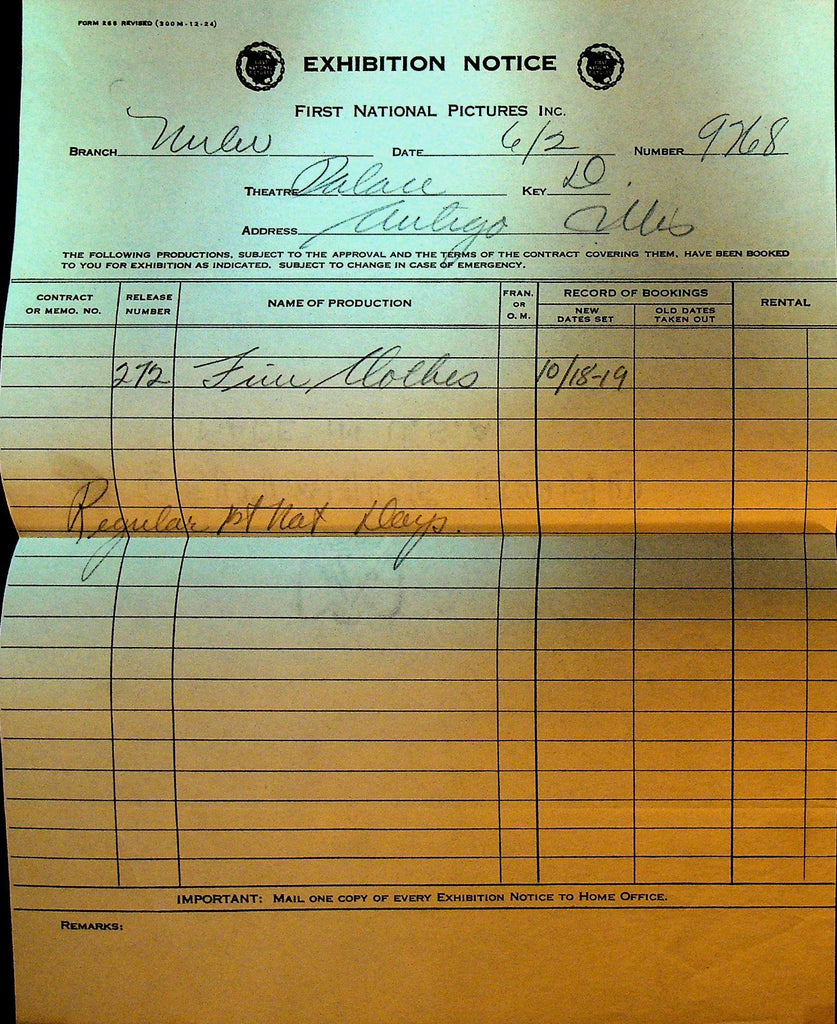 FORM 266 REVISED (300M-12-24)
EXHIBITION NOTICE
FIRST NATIONAL PICTURES INC.
BRANCH Milw DATE 6/2 NUMBER 9768
THEATRE Palace KEY D.
ADDRESS Antigo Wis
THE FOLLOWING PRODUCTIONS, SUBJECT TO THE APPROVAL AND THE TERMS OF THE CONTRACT COVERING THEM, HAVE BEEN BOOKED
TO YOU FOR EXHIBITION AS INDICATED. SUBJECT TO CHANGE IN CASE OF EMERGENCY.
CONTRACT OR MEMO. NO. RELEASE NUMBER NAME OF PRODUCTION FRAN. OR O. M. RECORD OF BOOKINGS NEW DATES SET OLD DATES TAKEN OUT RENTAL
272 Fine Clothes 10/18-19
Regular 1st Nat Days.
IMPORTANT: MAIL ONE COPY OF EVERY EXHIBITION NOTICE TO HOME OFFICE.
REMARKS: